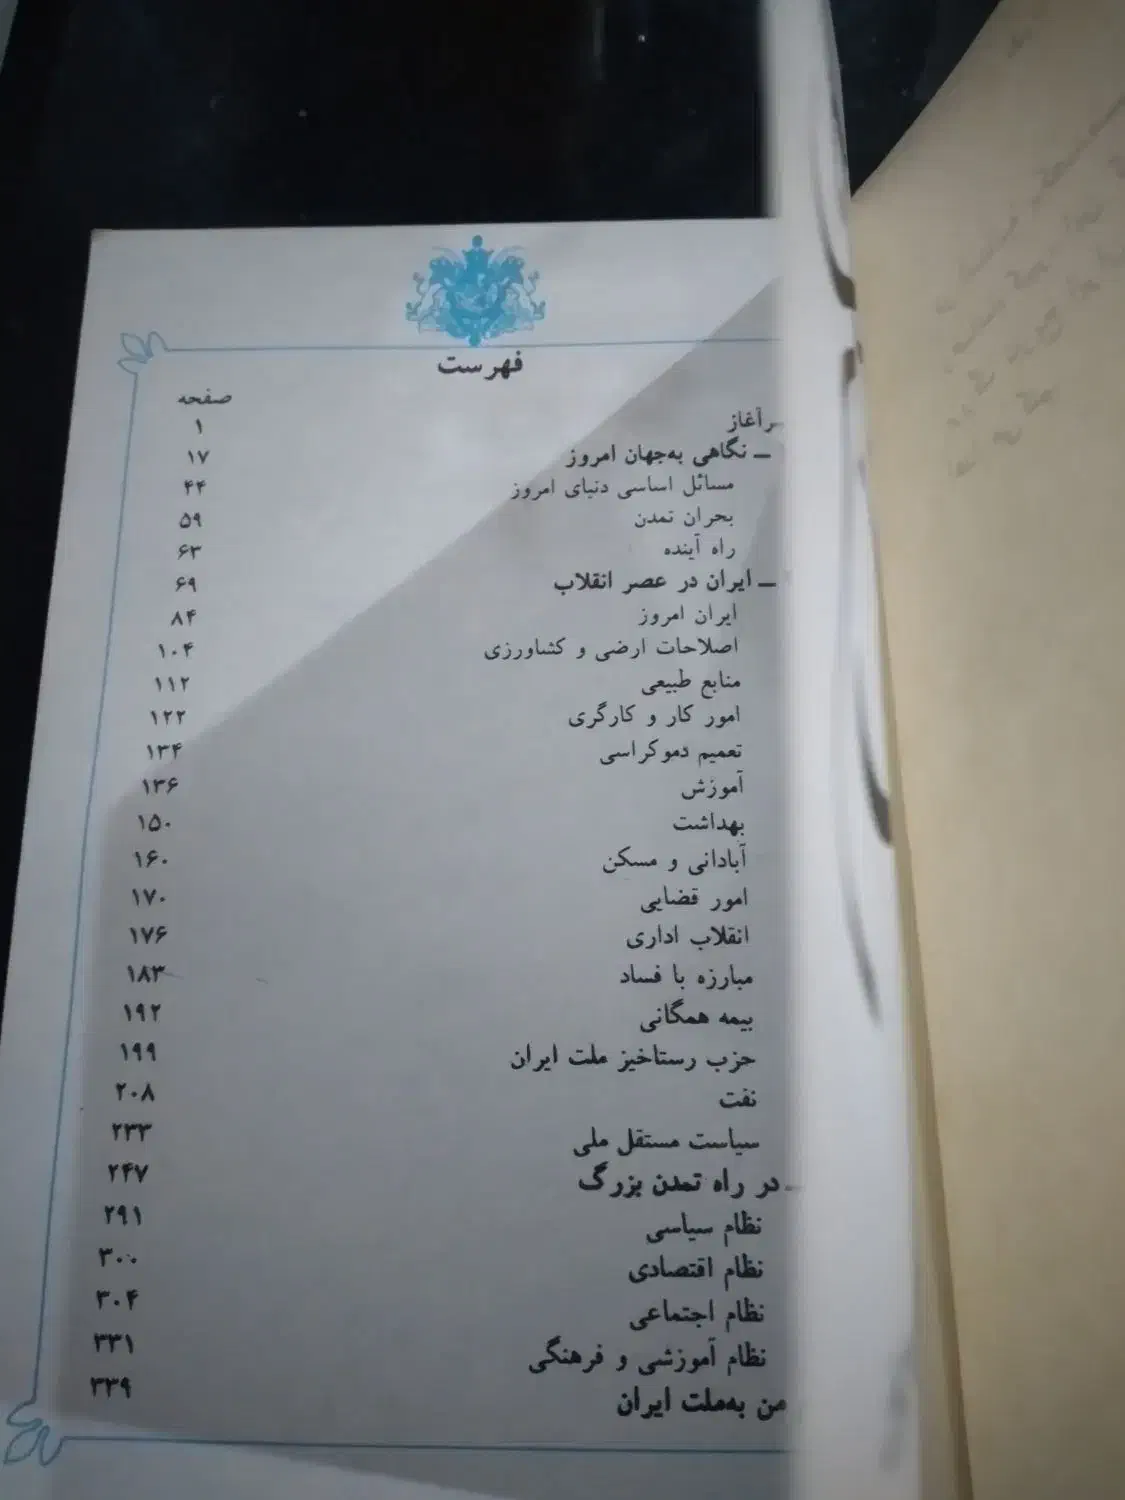 فهرست
صفحه
سرآغاز ۱
ـ نگاهی به‌جهان امروز ۱۷
مسائل اساسی دنیای امروز ۴۴
بحران تمدن ۵۹
راه آینده ۶۳
ـ ایران در عصر انقلاب ۶۹
ایران امروز ۸۴
اصلاحات ارضی و کشاورزی ۱۰۴
منابع طبیعی ۱۱۲
امور کار و کارگری ۱۲۲
تعمیم دموکراسی ۱۳۴
آموزش ۱۳۶
بهداشت ۱۵۰
آبادانی و مسکن ۱۶۰
امور قضایی ۱۷۰
انقلاب اداری ۱۷۶
مبارزه با فساد ۱۸۳
بیمه همگانی ۱۹۲
حزب رستاخیز ملت ایران ۱۹۹
نفت ۲۰۸
سیاست مستقل ملی ۲۳۳
ـ در راه تمدن بزرگ ۲۴۷
نظام سیاسی ۲۹۱
نظام اقتصادی ۳۰۰
نظام اجتماعی ۳۰۴
نظام آموزشی و فرهنگی ۳۳۱
من به‌ملت ایران ۳۳۹